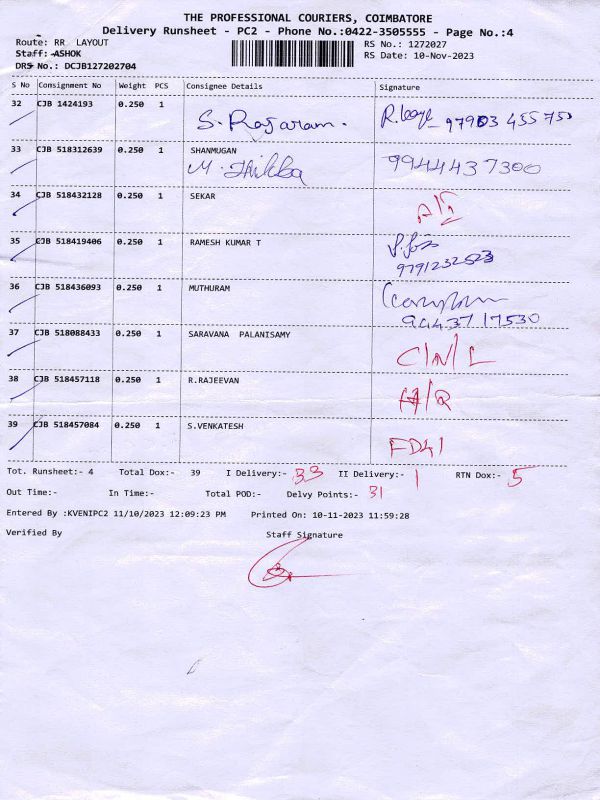 THE PROFESSIONAL COURIERS, COIMBATORE
Delivery Runsheet - PC2 - Phone No.:0422-3505555 - Page No.:4
Route: RR LAYOUT RS No.: 1272027
Staff: ASHOK RS Date: 10-Nov-2023
DRS No.: DCJB127202704
S No Consignment No Weight PCS Consignee Details Signature
32 CJB 1424193 0.250 1 S. Rajaram. 97903 455750
33 CJB 518312639 0.250 1 SHANMUGAN 9944437300
34 CJB 518432128 0.250 1 SEKAR
35 CJB 518419406 0.250 1 RAMESH KUMAR T
9791232523
36 CJB 518436093 0.250 1 MUTHURAM
37 CJB 518088433 0.250 1 SARAVANA PALANISAMY C/N/L
38 CJB 518457118 0.250 1 R.RAJEEVAN
39 CJB 518457084 0.250 1 S.VENKATESH
Tot. Runsheet:- 4 Total Dox:- 39 I Delivery:- 33 II Delivery:- 1 RTN Dox:- 5
Out Time:- In Time:- Total POD:- Delvy Points:- 31
Entered By :KVENIPC2 11/10/2023 12:09:23 PM Printed On: 10-11-2023 11:59:28
Verified By Staff Signature